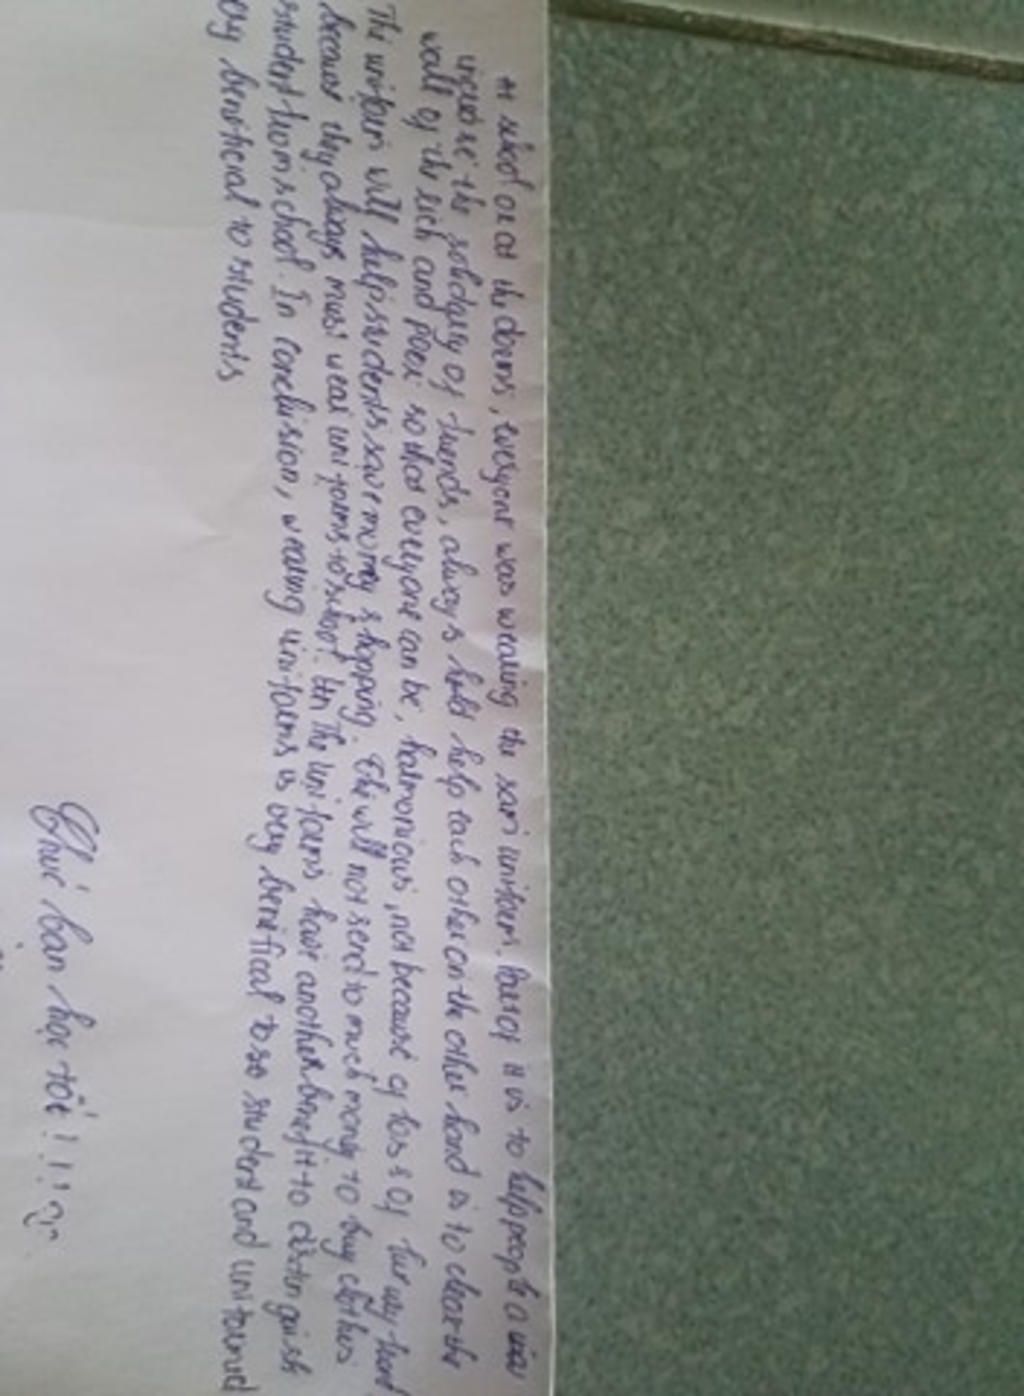 At school or at the dorms, everyone was wearing the sam uniform. Part of it is to help people a way
increase the solidary of friends, always help each other on the other hand is to clear the
wall of the rich and poor so that everyone can be, harmonious, not because of loss of
The uniform will help students save money shopping. The will not send to much money to buy clothes
because they always must wear uniforms to school. The uniforms have another benefit to distinguish
student from school. In conclusion, wearing uniforms is very benifical to student and uniformed
very benifical to students
Chúc bạn học tốt!!!